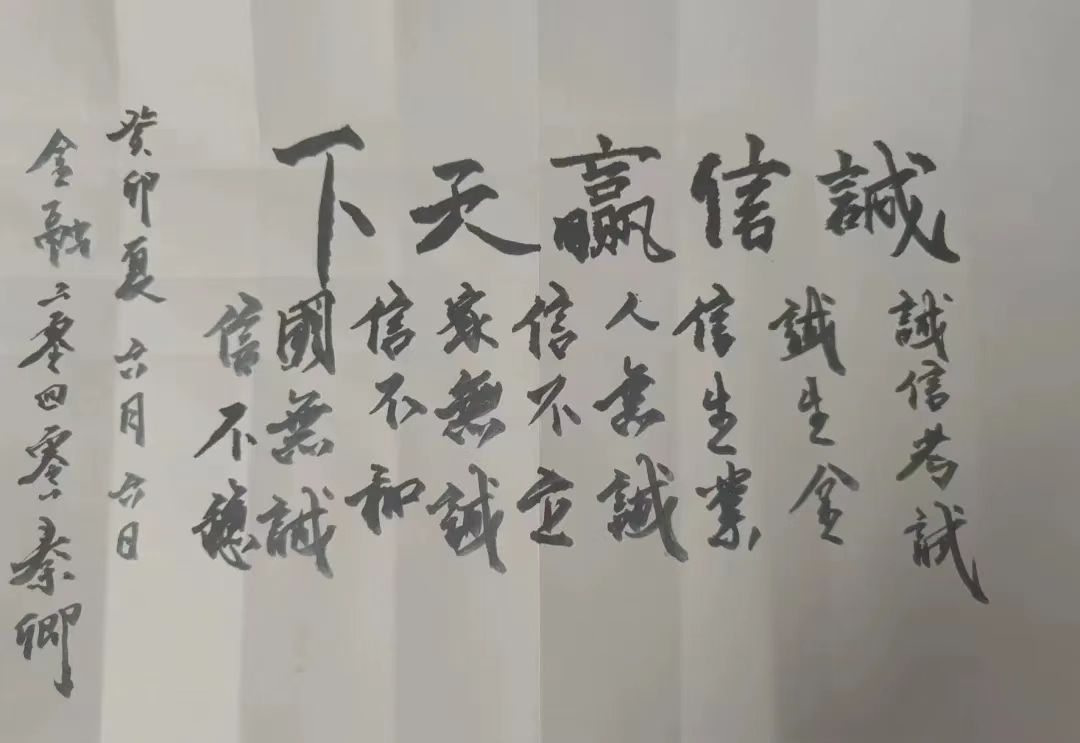 誠信贏天下
誠信考試
誠生金
信生業
人無誠
信不立
家無誠
信不和
國無誠
信不穩
癸卯夏六月六日
金融二零四零秦卿